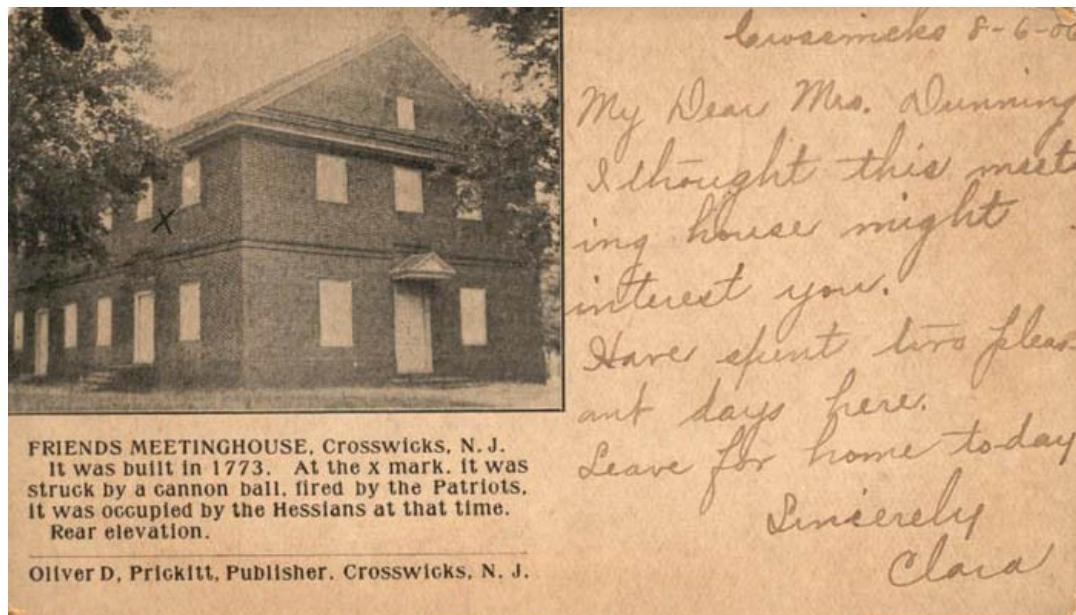 FRIENDS MEETINGHOUSE, Crosswicks, N. J.
It was built in 1773. At the x mark, it was
struck by a cannon ball, fired by the Patriots,
it was occupied by the Hessians at that time.
Rear elevation.
Oliver D, Prickitt, Publisher. Crosswicks, N. J.
X
Crosswicks 8-6-06
My Dear Mrs. Dunning
I thought this meet
ing house might
interest you.
Have spent two pleas-
ant days here.
Leave for home to-day
Sincerely
Clara